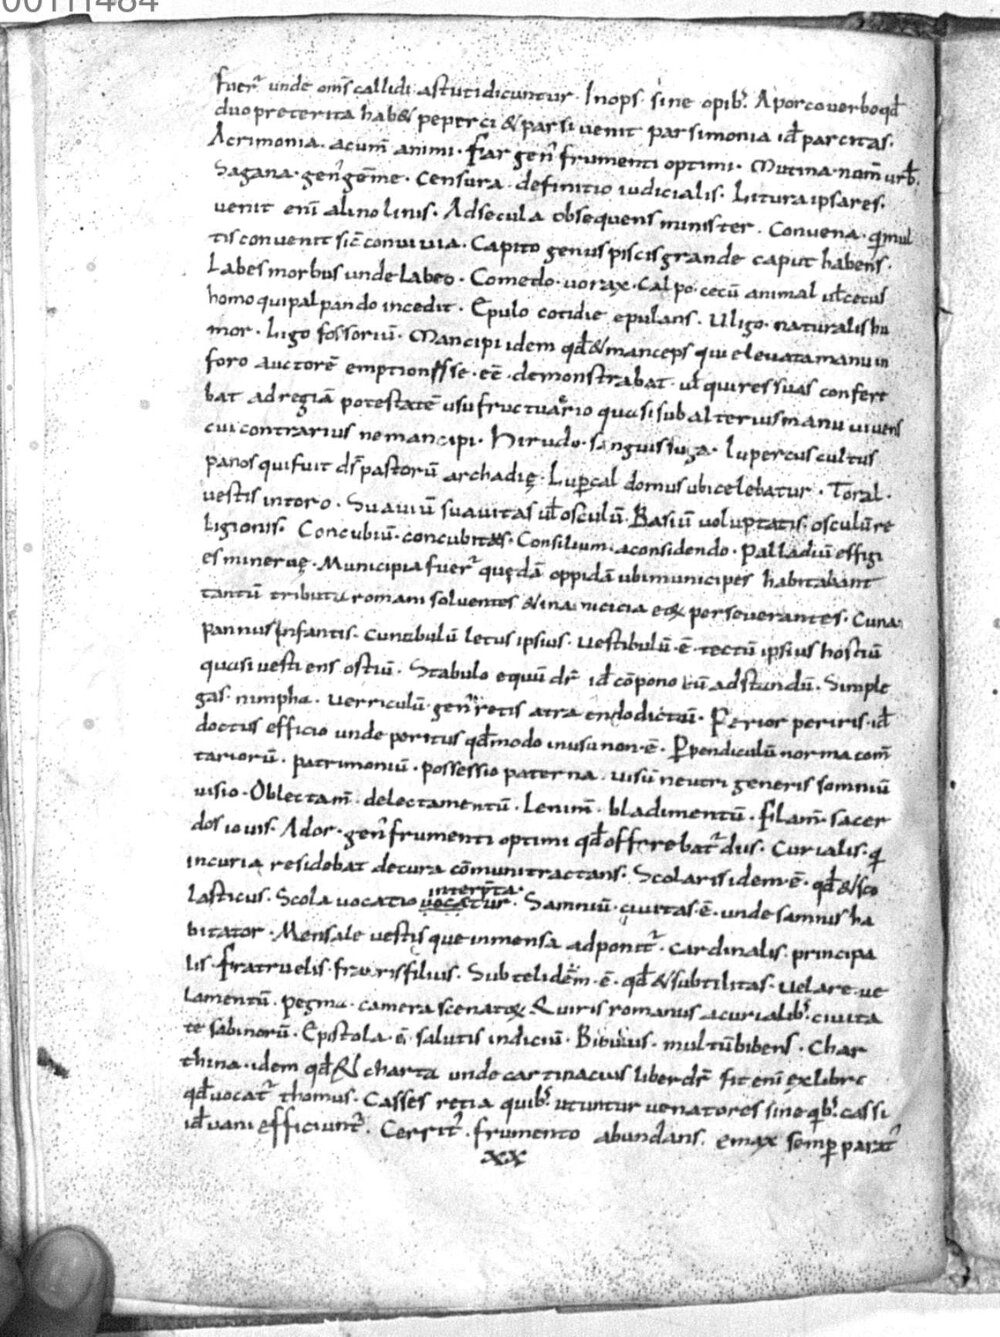 00111484
fuer̄ unde om̄s callidi astuti dicuntur · Inops sine opib; A porco uerbo qđ
duo preterita hab& peperci & parsi uenit parsimonia id̄ parcitas ·
Acrimonia · acum̄ animi · far gen̄ frumenti optimi · Mutina · nom̄ urb̄ ·
Sagana · gen̄ gēme · Censura · definitio iudicialis · Litura ipsa res ·
uenit eni alino linis · Adsecula obsequens minister · Conuena · q̄ mul
tis conuenit sic̄ conuiuia · Capito genus piscis grande caput habens ·
Labes morbus unde Labeo · Comedo · uorax · Calpo · cecū animal ul̄ cecus
homo qui palpando incedit · Epulo cotidie epulans · Uligo · naturalis hu
mor · Ligo fossoriū · Mancipi idem qđ & manceps qui eleuata manu in
foro auctorē emption esse · eē · demonstrabat · ul̄ qui res suas confere
bat ad regiā potestatē usufructuario quasi sub alterius manu uiuens
cui contrarius nemancipi · Hirudo · sanguissuga · Lupercus cultus
panos qui fuit dr̄ pastorū archadię · Lup̄cal domus ubi celebatur · Toral ·
uestis in toro · Suauiū suauitas ul̄ osculū · Basiū uoluptatis · osculū re
ligionis · Concubiū · concubitus · Consilium · aconsidendo · Palladiū effigi
es mineruę · Municipia fuer̄ quędā oppidā ubi municipes habitabant
tantū tributu romani soluentes & in amicicia eoꝝ perseuerantes · Cuna
pannus infantis · cunabulū lectus ipsius · uestibulū · ē · tectū ipsius hostiū
quasi uestiens ostiū · Stabulo equū dr̄ id̄ cōpono eū adstandū · Simple
gas · nimpha · uerriculū · gen̄ retis atra endo dictū · Perior periris · id̄
doctus efficio unde peritus qđ modo in usu non · ē · P̄pendiculū norma com̄
tariorū · patrimoniū · possessio paterna · uisū neutri generis somniū
uisio · Oblectam̄ · delectamentū · Lenim̄ · bladimentū · filam̄ · sacer
dos iouis · Ador · gen̄ frumenti optimi qđ offerebat̄ diis · Curialis · q̄
in curia residebat decura cōmuni tractans · Scolaris idem · ē · qđ & sco
lasticus · Scola uocatio interp̄ta · uocatur · Samniū · ciuitas · ē · unde samnis ha
bitator · Mensale uestis que in mensa adponit̄ · cardinalis · principa
lis · fratruelis · fratris filius · Subtel idem · ē · qđ & subtilitas · uelare · ue
lamentū · pegma · camera scenatoꝝ · Quiris romanus a curialib; ciuita
te sabinorū · Epistola · ē · salutis indiciū · Bibulus · multū bibens · Char
thina · idem qđ & charta unde cartinacius liber dr̄ fit eni ex libro
qđ uocat̄ thomus · Casses retia quib; utuntur uenatores sine q̄b; cassi
id̄ uani efficiunt̄ · Cerrit̄ · frumento abundans · emax semp̄ parat̄
xx